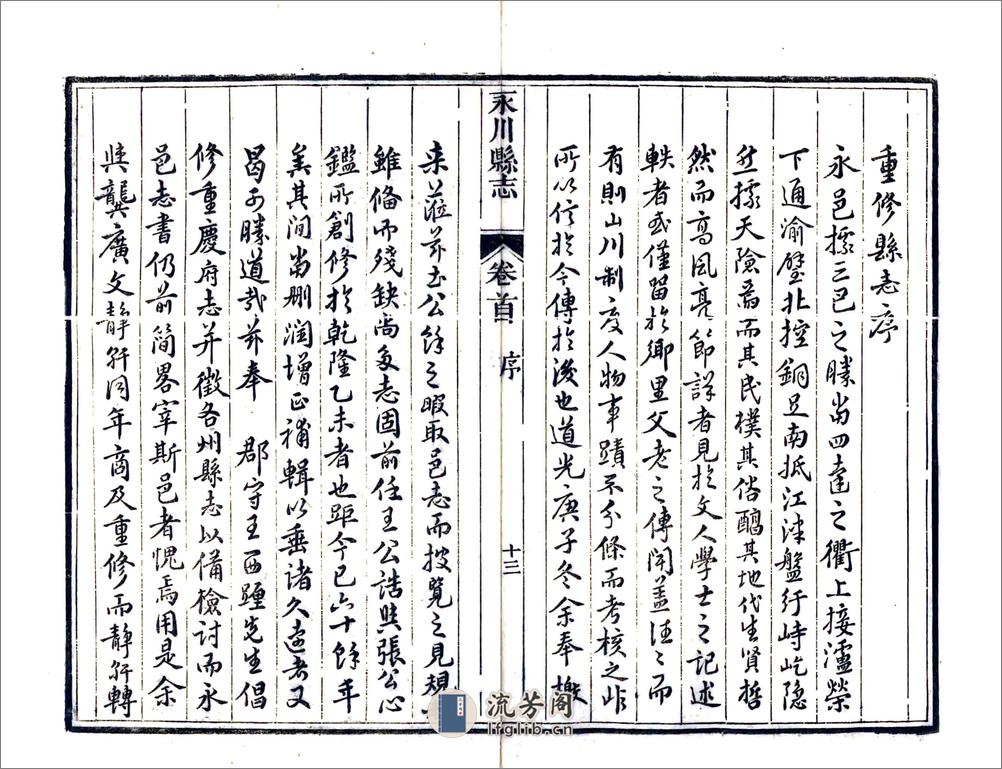 重修縣志序
永邑據三巴之勝當四達之衢上接瀘榮
下通渝璧北控銅足南抵江津盤紆峙屹隱
然據天險焉而其民樸其俗醕其地代生賢哲
然而高風亮節詳者見於文人學士之記述
軼者或僅留於鄉里父老之傳聞蓋往之而
有則山川制度人物事蹟不分條而考核之非
所以信於今傳於後也道光庚子冬余奉檄
永川縣志
卷首
序
十三
来蒞茲土公餘之暇取邑志而披覽之見規
雖備而殘缺尚多志固前任王公誥與張公心
鑑所創修於乾隆乙未者也距今已六十餘年
矣其間當刪潤增正補輯以垂諸久遠者又
曷可勝道哉茲奉 郡守王西躔先生倡
修重慶府志并徵各州縣志以備檢討而永
邑志書仍前簡畧宰斯邑者愧焉用是余
與龔廣文靜軒同年商及重修而靜軒轉
流芳阁
lfglib.cn